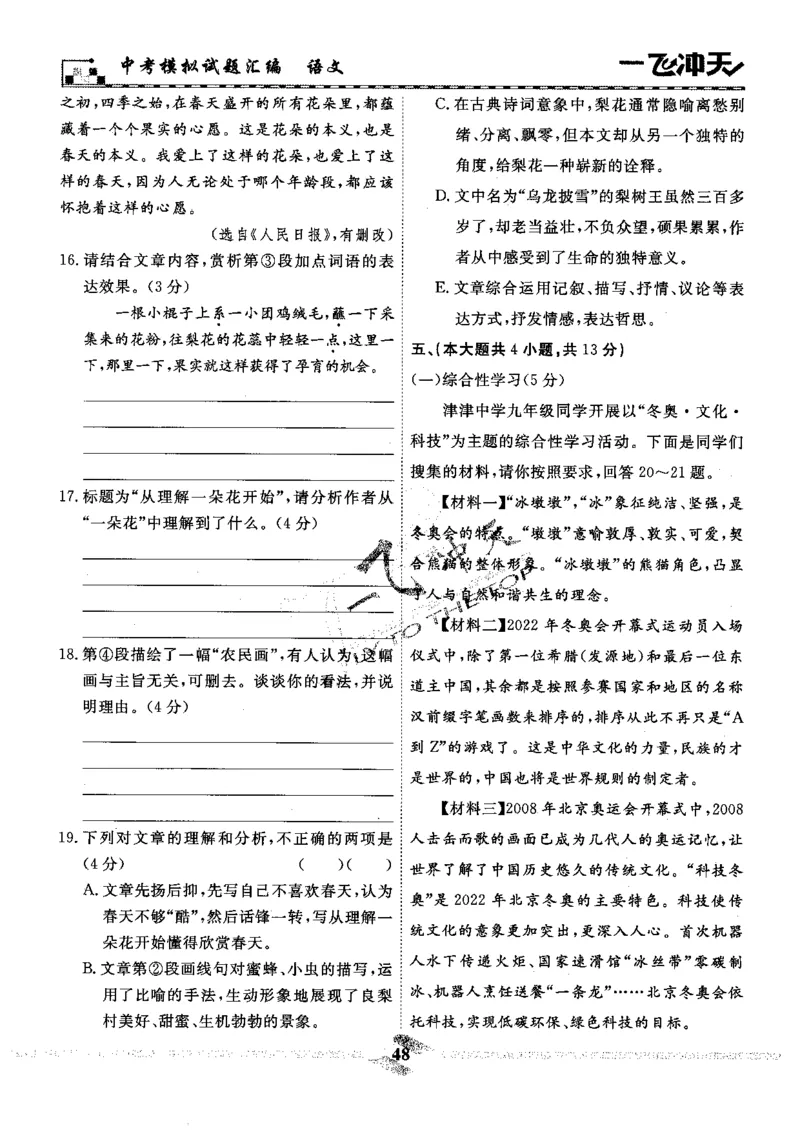 中考模拟试题汇编 语文
一飞冲天
之初,四季之始,在春天盛开的所有花朵里,都蕴
藏着一个个果实的心愿。这是花朵的本义,也是
春天的本义。我爱上了这样的花朵,也爱上了这
样的春天,因为人无论处于哪个年龄段,都应该
怀抱着这样的心愿。
(选自《人民日报》,有删改)
16.请结合文章内容,赏析第③段加点词语的表
达效果。(3分)
一根小棍子上系一小团鸡绒毛,蘸一下采
集来的花粉,往梨花的花蕊中轻轻一点,这里一
下,那里一下,果实就这样获得了孕育的机会。
17.标题为“从理解一朵花开始”,请分析作者从
“一朵花”中理解到了什么。(4分)
18.第④段描绘了一幅“农民画”,有人认为,这幅
画与主旨无关,可删去。谈谈你的看法,并说
明理由。(4分)
19.下列对文章的理解和分析,不正确的两项是
(4分) ( )( )
A.文章先扬后抑,先写自己不喜欢春天,认为
春天不够“酷”,然后话锋一转,写从理解一
朵花开始懂得欣赏春天。
B.文章第②段画线句对蜜蜂、小虫的描写,运
用了比喻的手法,生动形象地展现了良梨
村美好、甜蜜、生机勃勃的景象。
C.在古典诗词意象中,梨花通常隐喻离愁别
绪、分离、飘零,但本文却从另一个独特的
角度,给梨花一种崭新的诠释。
D.文中名为“乌龙披雪”的梨树王虽然三百多
岁了,却老当益壮,不负众望,硕果累累,作
者从中感受到了生命的独特意义。
E.文章综合运用记叙、描写、抒情、议论等表
达方式,抒发情感,表达哲思。
五、(本大题共4小题,共13分)
(一)综合性学习(5分)
津津中学九年级同学开展以“冬奥·文化·
科技”为主题的综合性学习活动。下面是同学们
搜集的材料,请你按照要求,回答20～21题。
【材料一】“冰墩墩”,“冰”象征纯洁、坚强,是
冬奥会的特点。“墩墩”意喻敦厚、敦实、可爱,契
合熊猫的整体形象。“冰墩墩”的熊猫角色,凸显
了人与自然和谐共生的理念。
【材料二】2022年冬奥会开幕式运动员入场
仪式中,除了第一位希腊(发源地)和最后一位东
道主中国,其余都是按照参赛国家和地区的名称
汉前缀字笔画数来排序的,排序从此不再只是“A
到Z”的游戏了。这是中华文化的力量,民族的才
是世界的,中国也将是世界规则的制定者。
【材料三】2008年北京奥运会开幕式中,2008
人击缶而歌的画面已成为几代人的奥运记忆,让
世界了解了中国历史悠久的传统文化。“科技冬
奥”是2022年北京冬奥的主要特色。科技使传
统文化的意象更加突出,更深入人心。首次机器
人水下传递火炬、国家速滑馆“冰丝带”零碳制
冰、机器人烹饪送餐“一条龙”……北京冬奥会依
托科技,实现低碳环保、绿色科技的目标。
48
一飞冲天
TO THE TOP